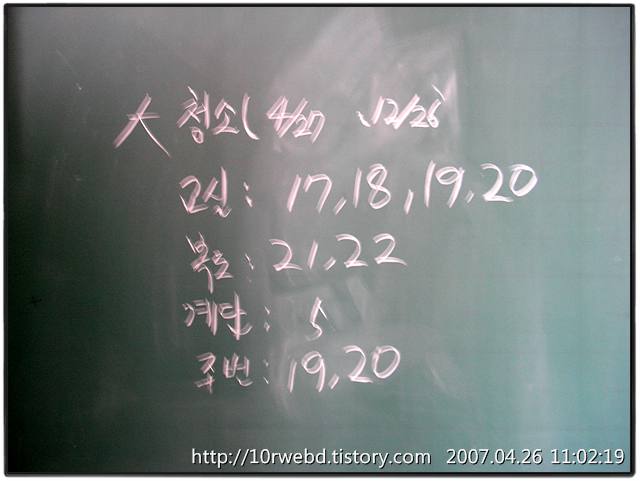 大 청소 ( 4/27 、12/28
교실 : 17, 18, 19, 20
복도 : 21, 22
계단 : 5
주번 : 19, 20
http://10rwebd.tistory.com 2007.04.26 11:02:19